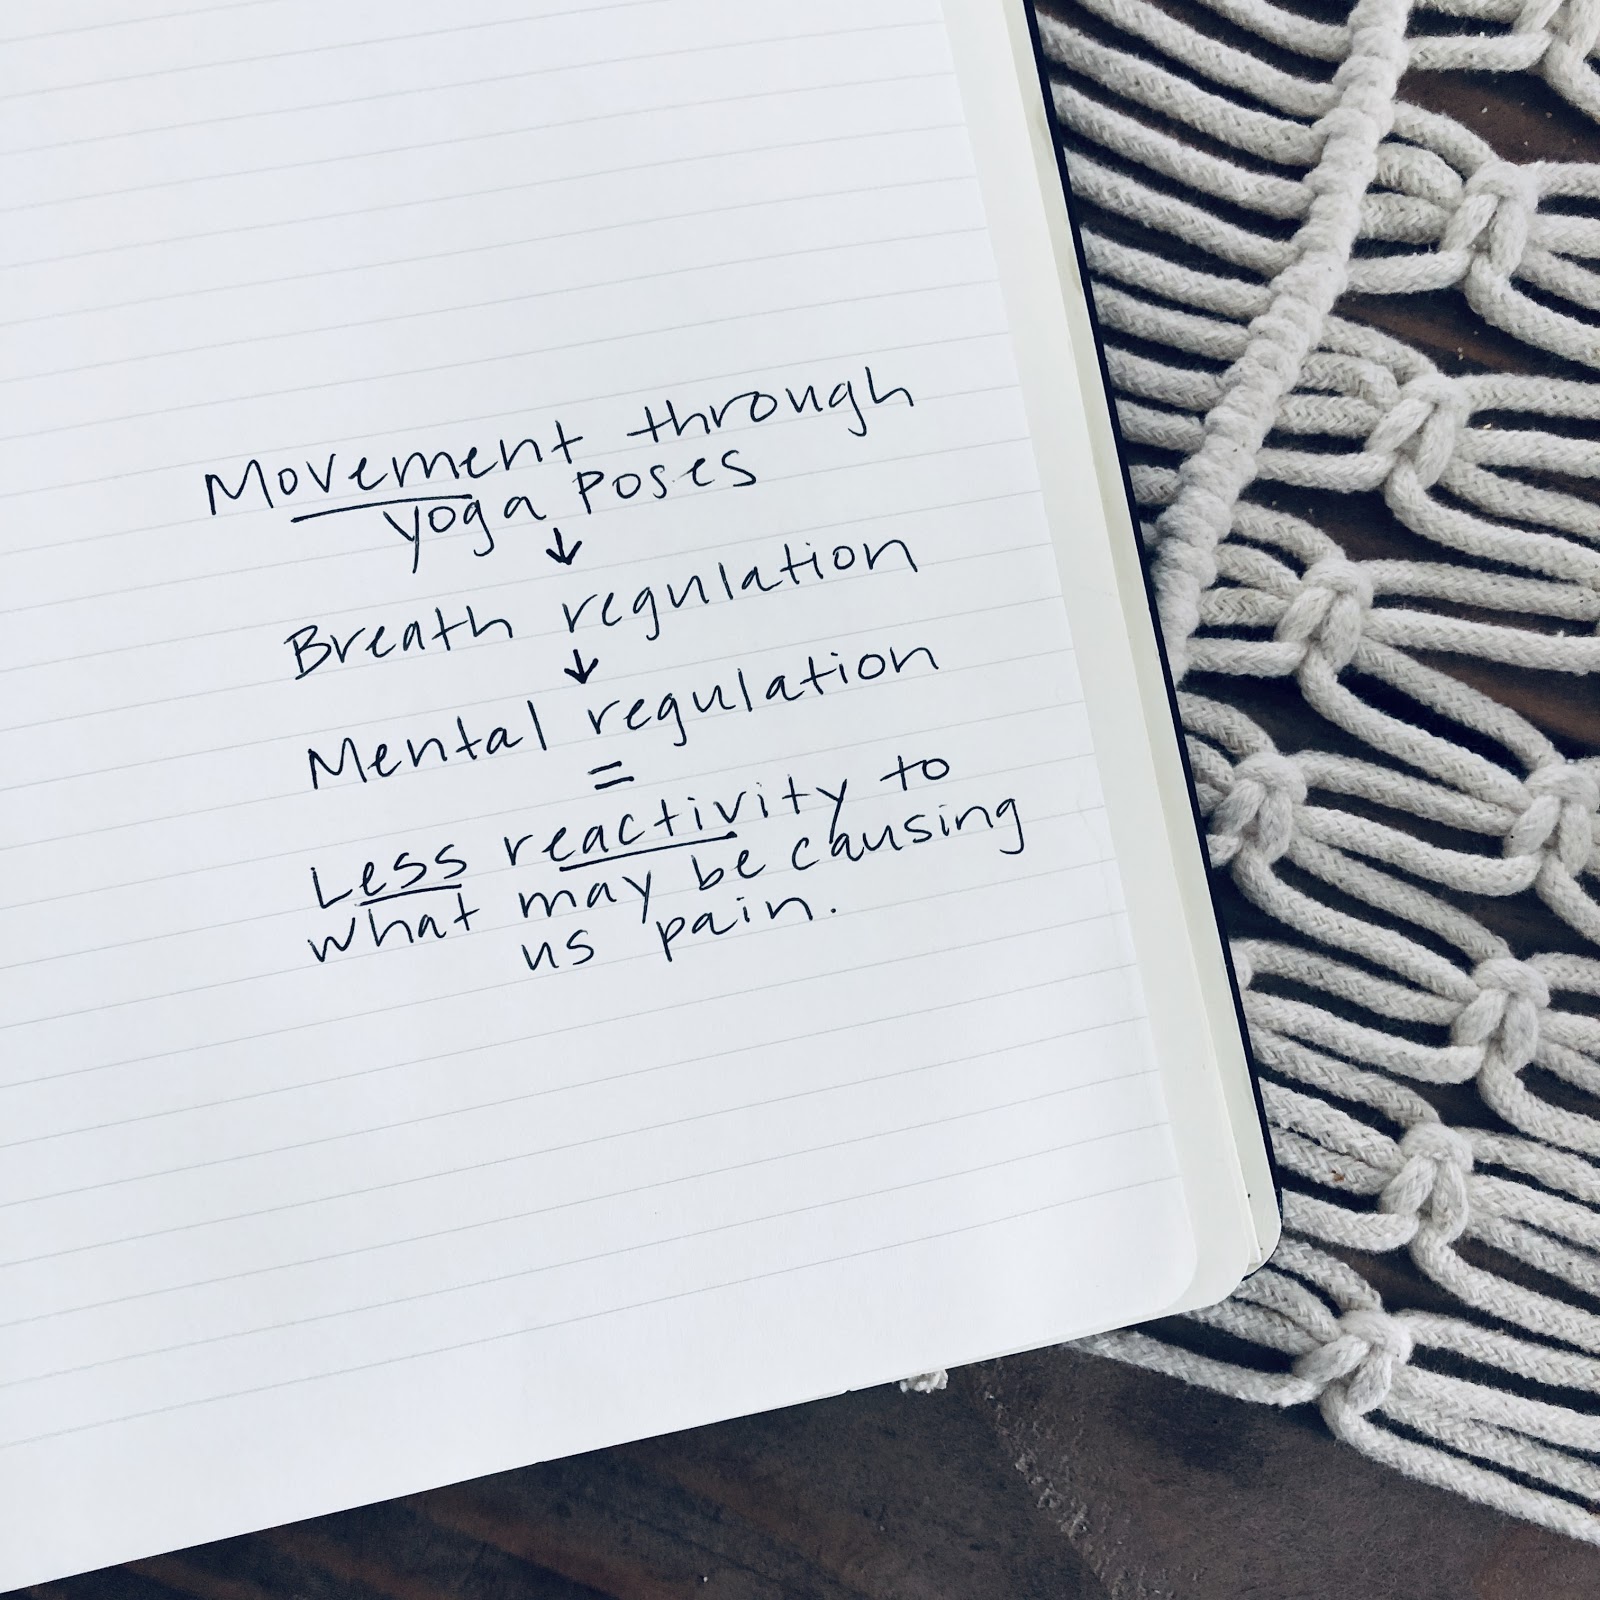 Movement through
yoga poses
↓
Breath regulation
↓
Mental regulation
=
Less reactivity to
what may be causing
us pain.